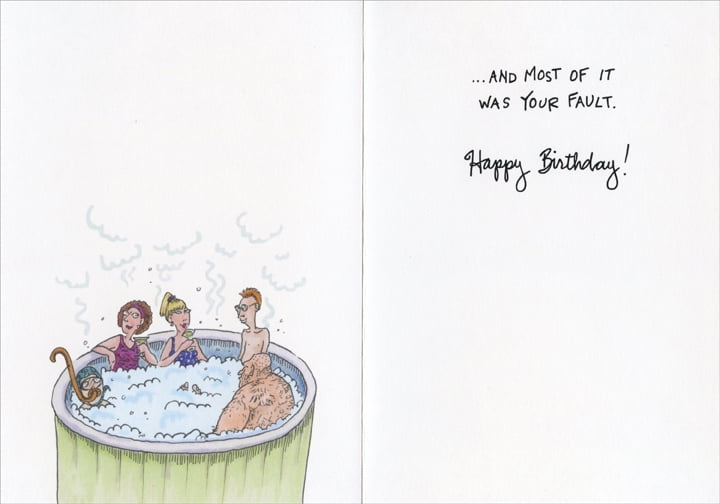 ...AND MOST OF IT
WAS YOUR FAULT.
Happy Birthday!